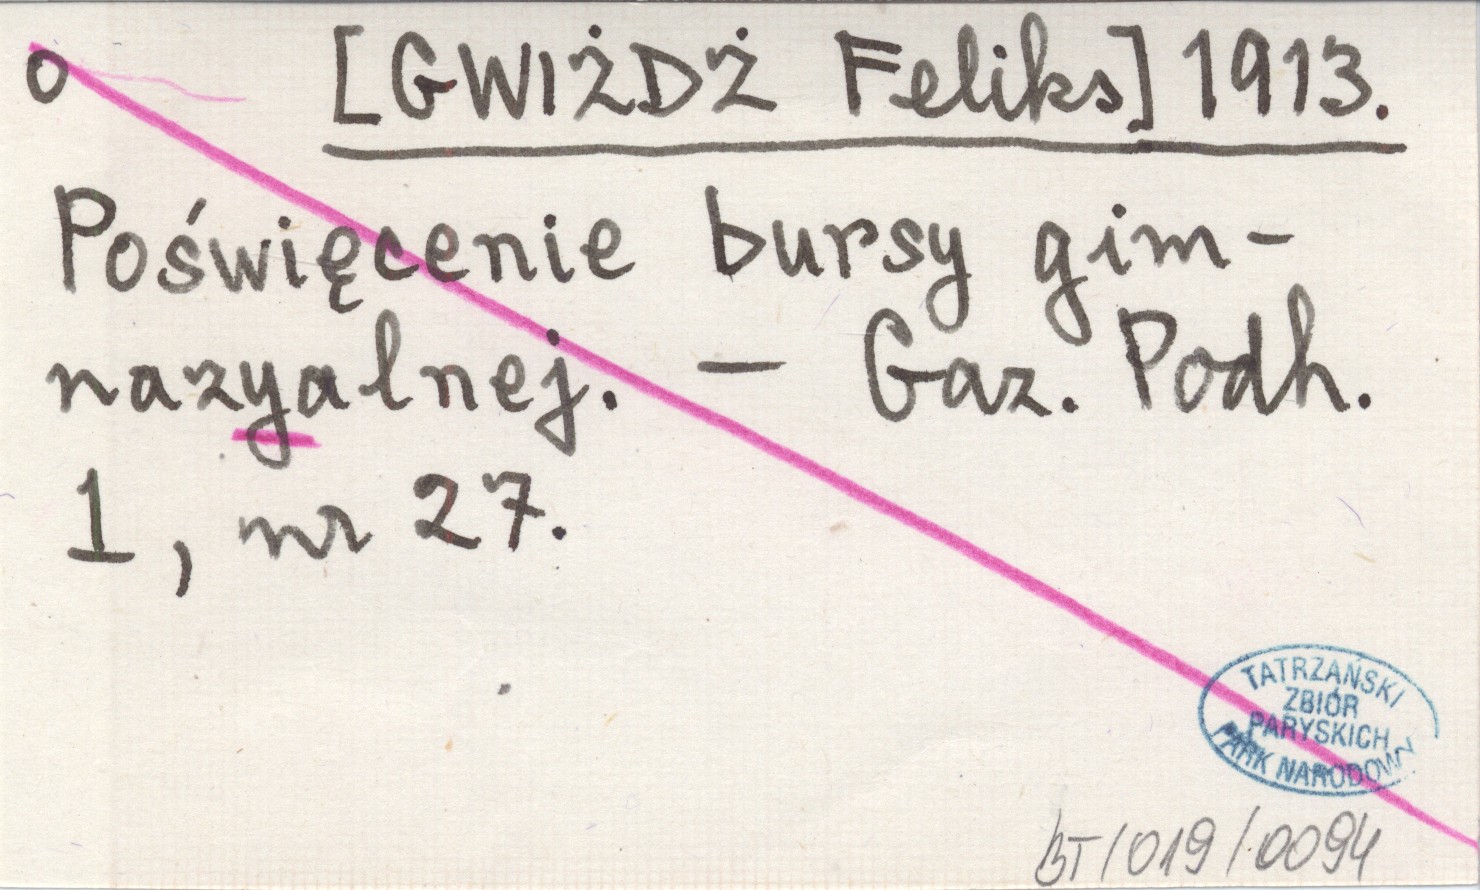 o [GWIŻDŻ Feliks] 1913.
Poświęcenie bursy gim-
nazyalnej. — Gaz. Podh.
1, nr 27.
TATRZAŃSKI
ZBIÓR
PARYSKICH
PARK NARODOWY
BT/019/0094